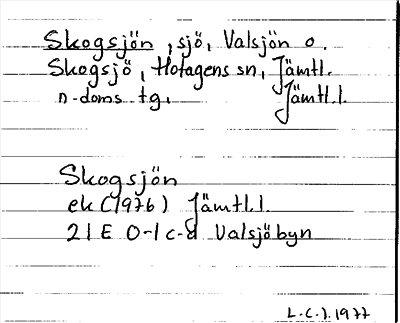 Skogsjön, sjö, Valsjön o.
Skogsjö, Hotagens sn, Jämtl.
n-doms tg. Jämtl.l.
Skogsjön
ek (1976) Jämtl.l.
21E 0-1 c-d Valsjöbyn
L.C.J. 1977